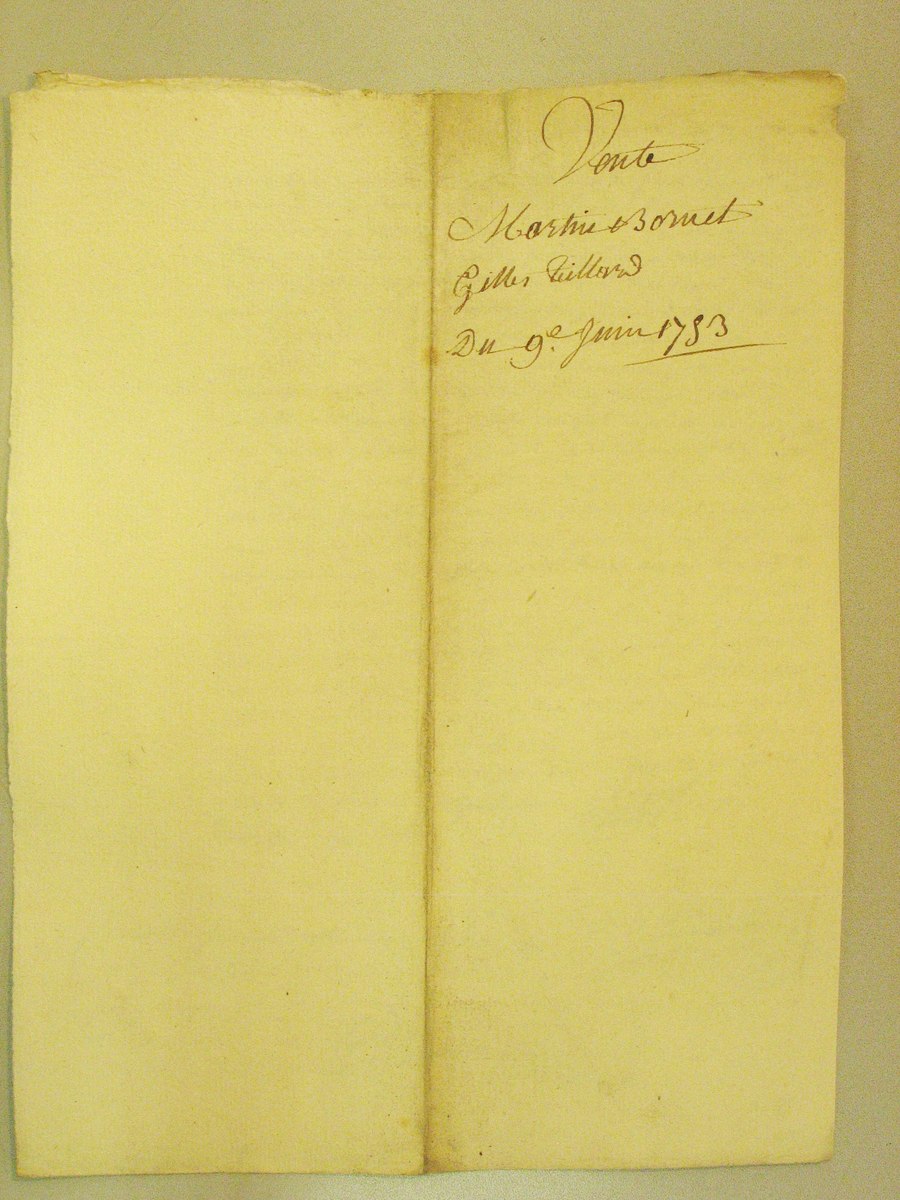 Vente
Martin Bornet
Gilles
Du 9e. Juin 1753